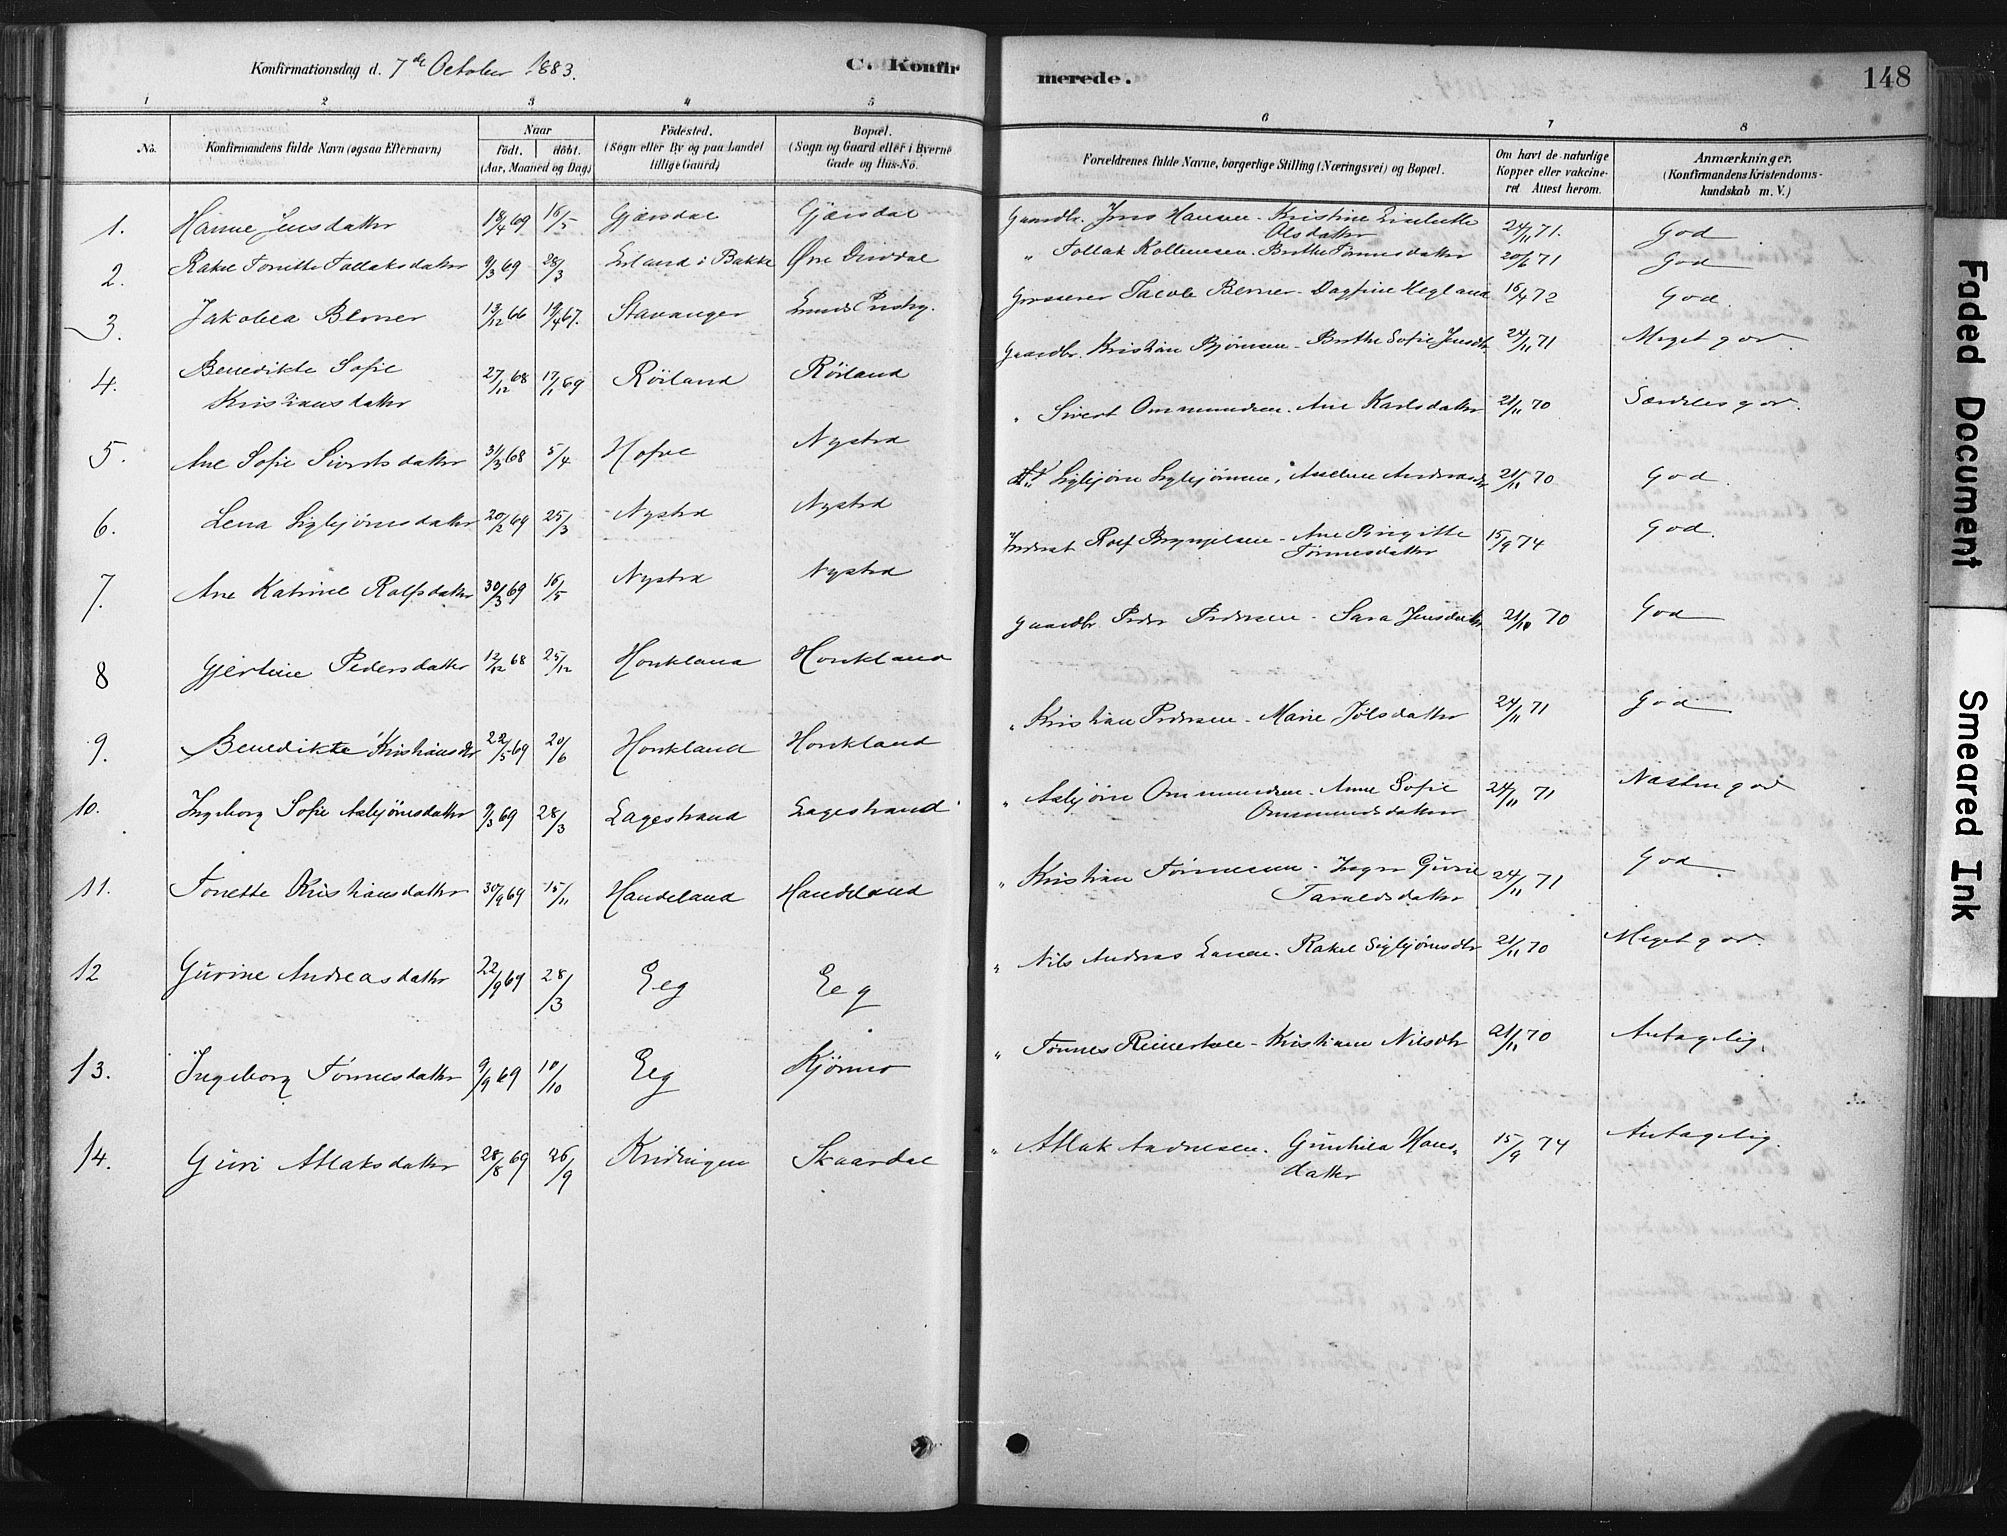 Konfirmationsdag d. 7de October 1883. C. Konfirmerede. 148
1 2 3 4 5 6 7 8
No. Konfirmandens fulde Navn (ogsaa Efternavn) Naar födt. döbt. (Aar, Maaned og Dag) Födested. (Sogn eller By og paa Landet tillige Gaard) Bopæl. (Sogn og Gaard eller i Byerne Gade og Hus-No. Forældrenes fulde Navne, borgerlige Stilling (Næringsvei) og Bopæl. Om havt de naturlige Kopper eller vakcineret. Attest herom. Anmærkninger. (Konfirmandens Kristendomskundskab m. V.)
1. Hanne Jensdatter 18/4 69 16/5 Gjærsdal Gjærsdal Gaardbr. Jens Hansen - Kristine Olsdatter 24/11 71. God
2. Rakel Tonette Tollaksdatter 9/3 69 28/3 Erland i Bakke Øvre " Tollak Kollensen. Berthe Tønnesdatter 20/6 71 God
3. Jakobea Berner 13/12 66 19/4 67. Stavanger Lunds Grosserer Jacob Berner - Dagfine Hegland 16/4 72 God.
4. Benedikte Sofie Kristiansdatter 27/12 68 17/1 69 Röiland Röiland Gaardbr. Kristian Bjørnsen - Berthe Sofie Jensdtr 24/11 71 Meget god.
5. Ane Sofie Sivertsdatter 31/3 68 5/4 Hofve Nystrd " Sivert Ommundsen. Ane Karlsdatter 21/11 70 Særdeles god.
6. Lena Sigbjørnsdatter 20/2 69 25/3 Nystrd Nystrd Sigbjørn Sigbjørnsen, 21/11 70 God.
7. Ane Katrine Rolfsdatter 30/3 69 16/5 Nystrd Nystrd Inderst Rolf Brynjelsen - Ane Birgitte Tønnesdatter 15/9 74 God.
8 Gjertine Pedersdatter 12/12 68 25/12 Houkland Houkland Gaardbr. Peder Pedersen - Sara Jensdatter 21/11 70 God
9. Benedikte Kristiansdtr 22/5 69 20/6 Houkland Houkland " Kristian Pedersen - Marie Jølsdatter 24/11 71 God
10. Ingeborg Sofie Asbjörnsdatter 9/3 69 28/3 Lagestrand Lagestrand " Asbjörn Ommundsen. Anne Sofie Ommundsdatter 24/11 71 Næsten god
11. Tonette Kristiansdatter 30/9 69 15/11 Handeland Handeland " Kristian Tønnesen - Inger Gurie Taraldsdatter 24/11 71 God.
12 Gurine Andreasdatter 22/9 69 28/3 Eeg Eeg " Nils Andreas Larsen. Rakel Sigbjørnsdtr 21/11 70 Meget god.
13. Ingeborg Tønnesdatter 9/9 69 10/10 Eeg Kjørmo " Tønnes Reinertsen - Kristiane Nilsdtr 21/11 70 Antagelig.
14. Guri Atlaksdatter 28/8 69 26/9 Kridingen Skaardal " Atlak Andresen. Gunhild Hansdatter 15/9 74 Antagelig.
Faded Document
Smeared Ink